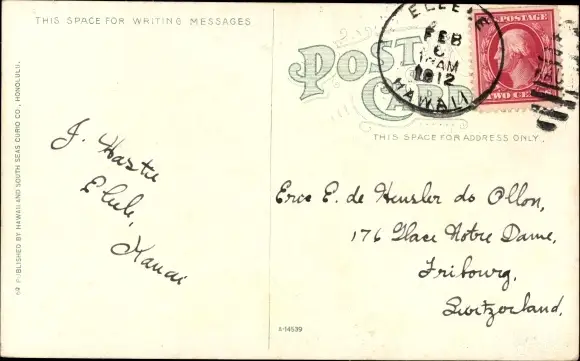 THIS SPACE FOR WRITING MESSAGES
62 PUBLISHED BY HAWAII AND SOUTH SEAS CURIO CO., HONOLULU.
J. Hastie
Elele,
Kauai
POST CARD
ELEELE
FEB
6
12
AM
1912
HAWAII
POSTAGE
TWO CE
THIS SPACE FOR ADDRESS ONLY.
Eric E. de Heusler do Ollon,
176 Place Notre Dame,
Fribourg,
Switzerland.
A-14539